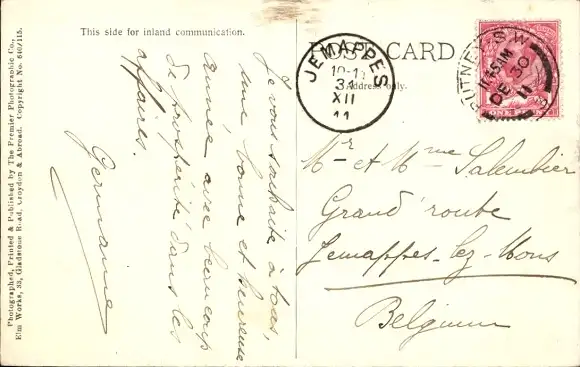 This side for inland communication.
POST CARD
Address only.
Photographed, Printed & Published by The Premier Photographic Co.,
Elm Works, 33, Gladstone Road, Croydon & Abroad. Copyright No. 640/115.
Je vous souhaite à tous,
une bonne et heureuse
année avec beaucoup
de prospérité dans les
affaires.
Germaine
JEMAPPES
31
XII
11
PUTNEY. S.W.
11.45AM
DE 30
11
Mr et Mme Salembier
Grand'route
Jemappes-lez-Mons
Belgium